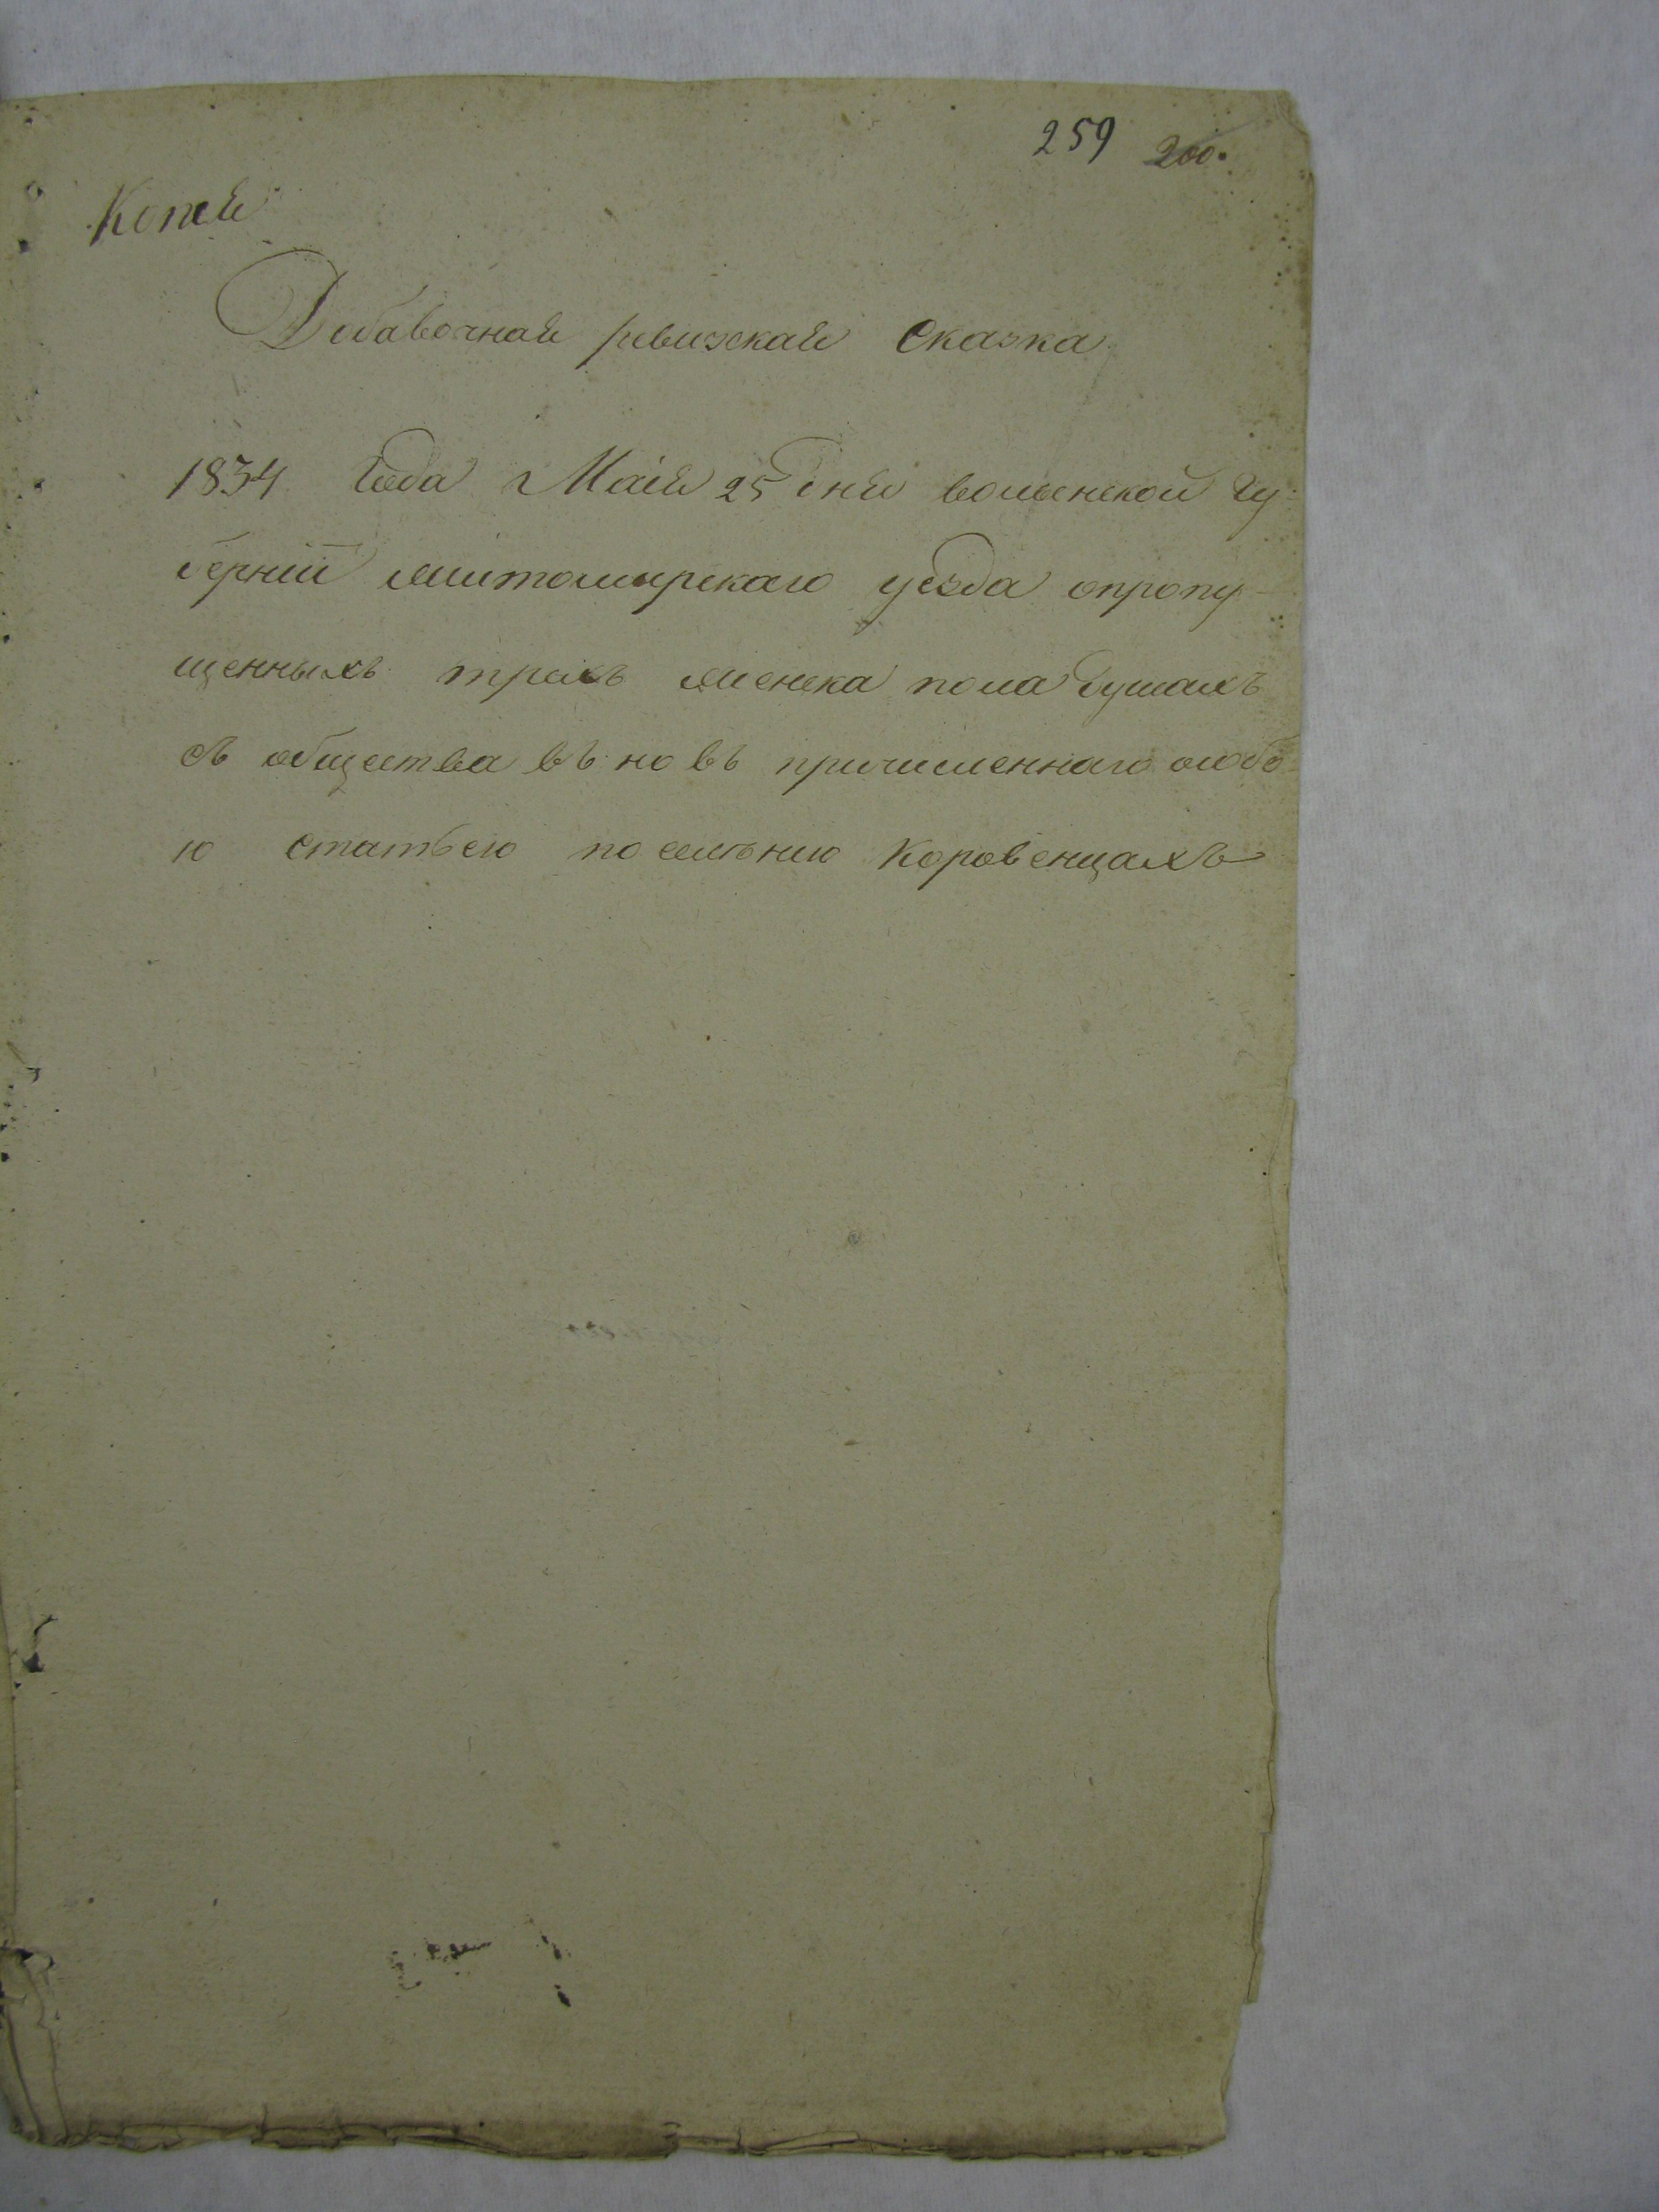 259 200.
Копія
Добавочная ревизская Сказка
1834 Года Маія 25 дня волынской гу-
берніи житомирскаго уезда опропу-
щенныхъ трехъ женска пола душахъ
съ общества въ новь причисленнаго особо
ю статьею по селънию Коровенцахъ